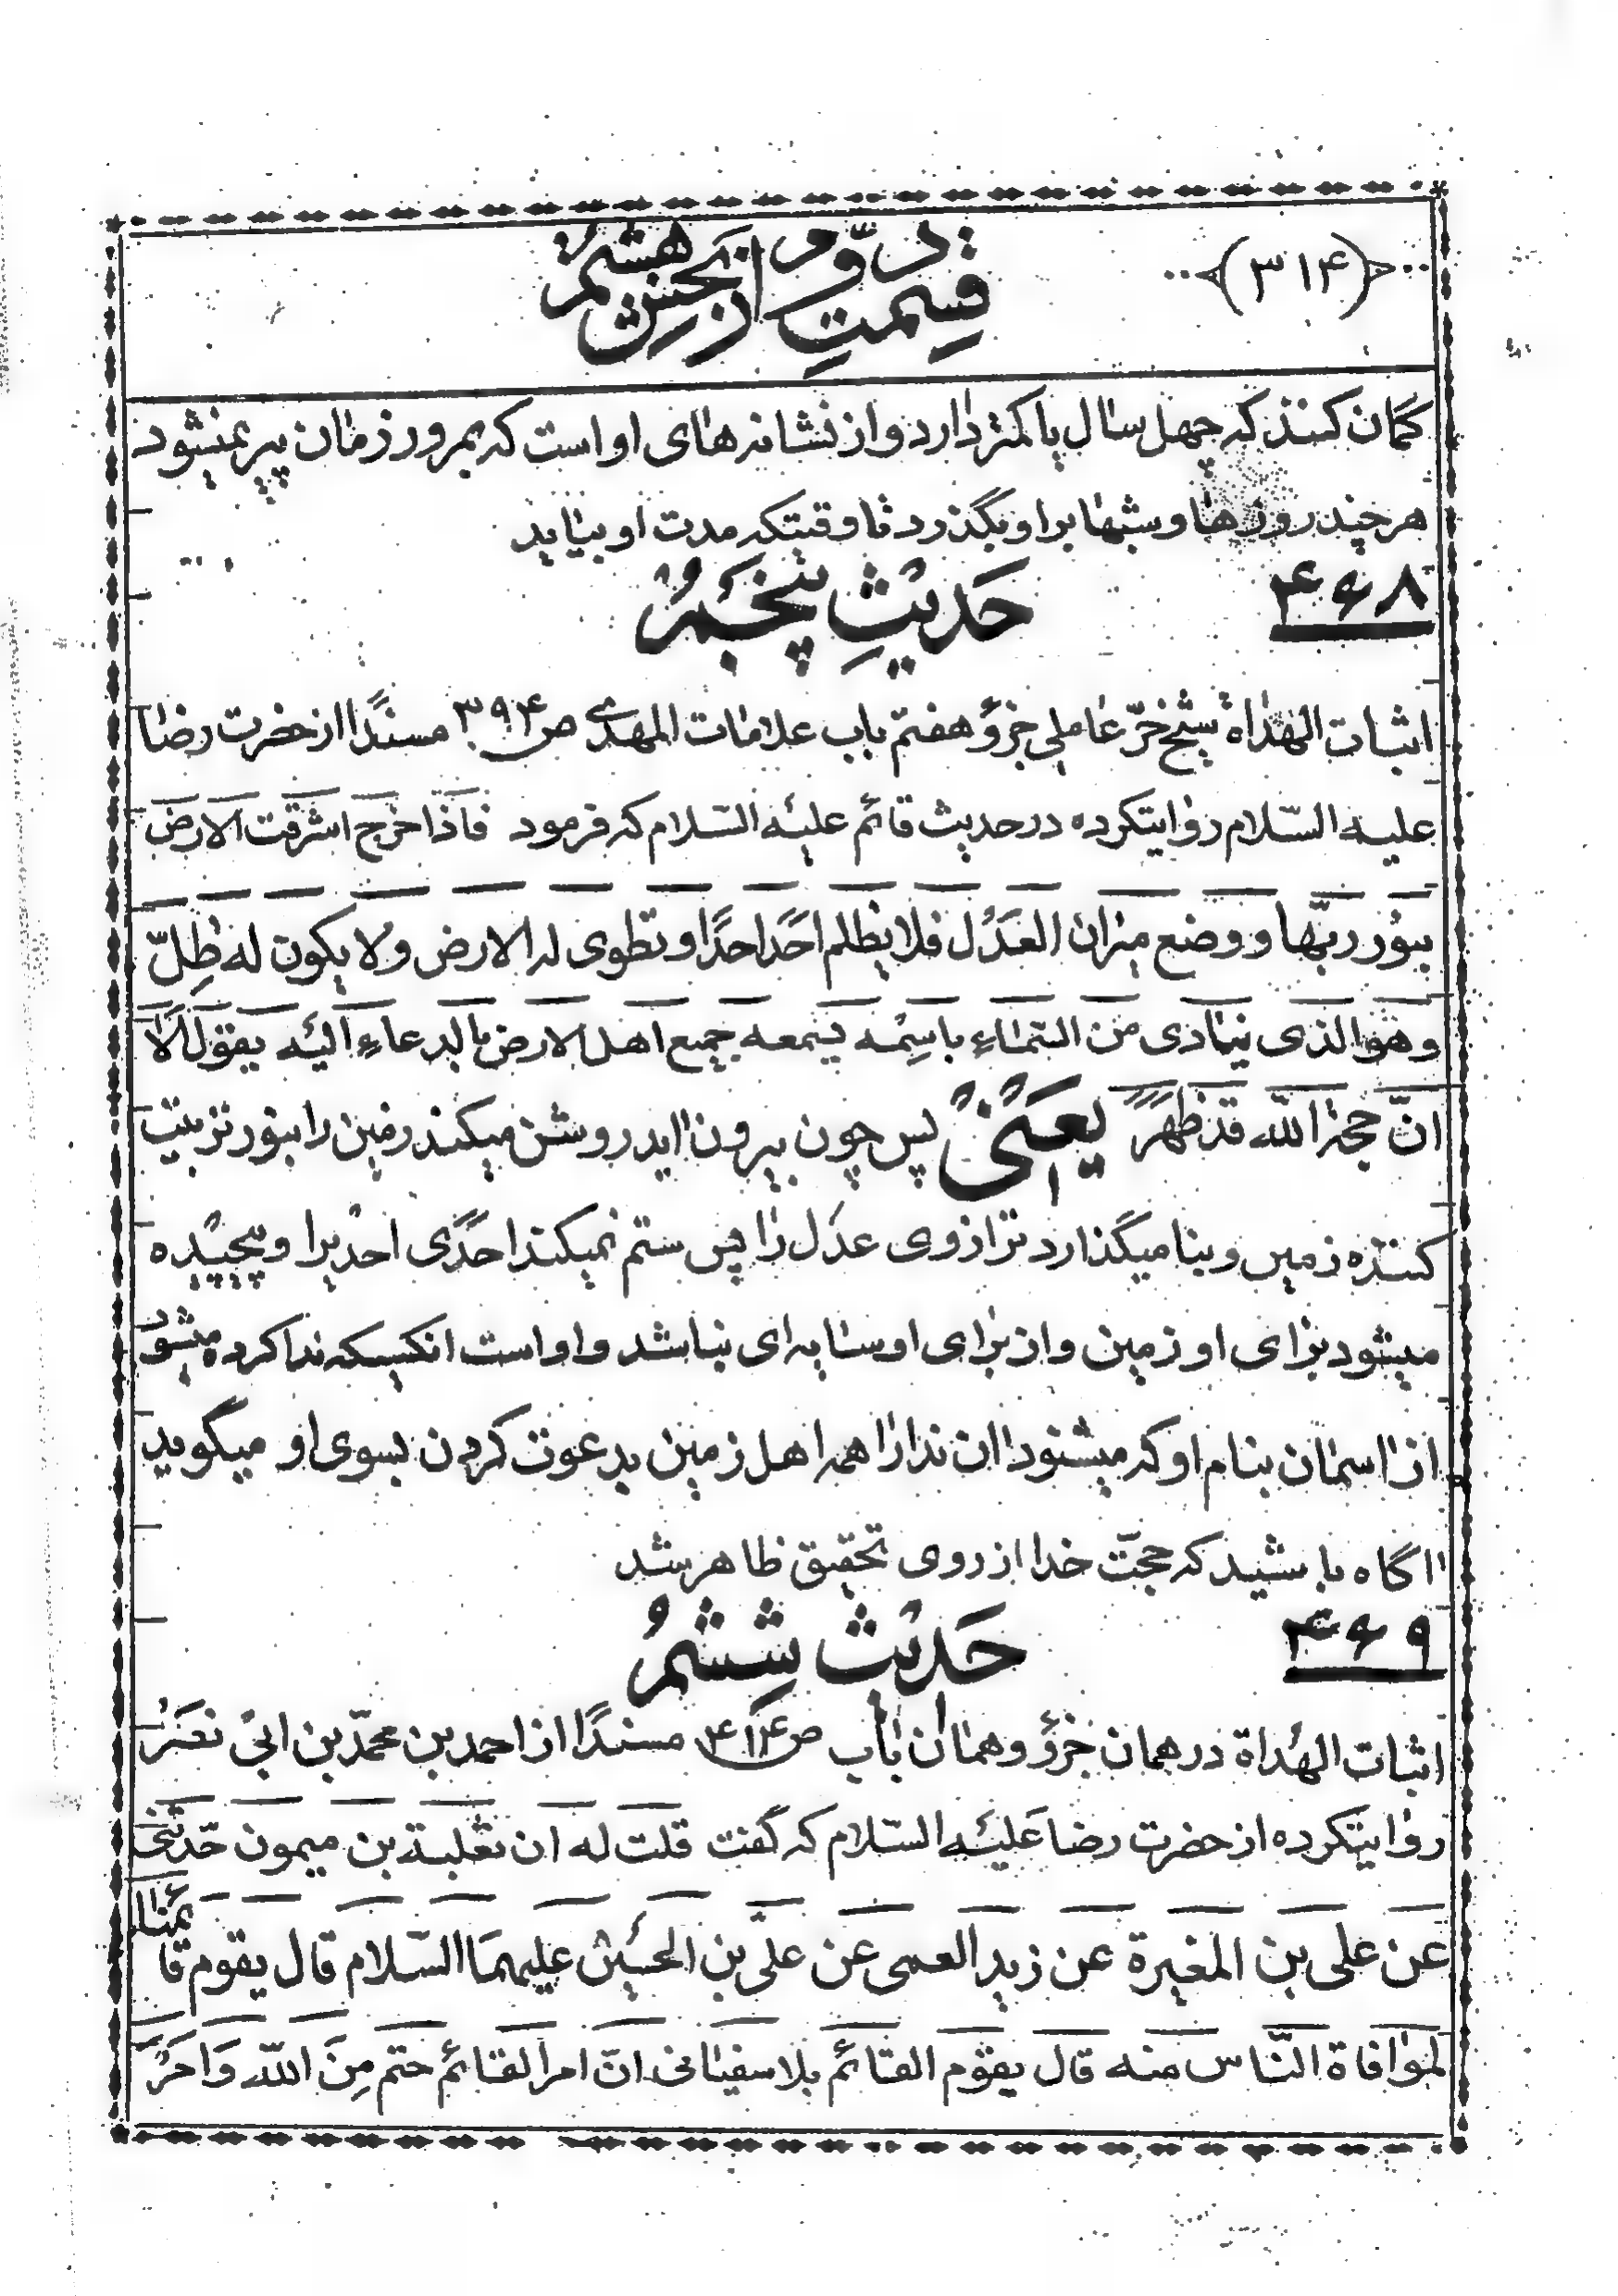 (۳۱۴)
قسمتِ دوّم از بخش هشتم
گمان کنند که چهل سال یا کمتر دارد و از نشانه های او است که بمرور زمان پیر نمیشود
هر چند روزها و شبها بر او بگذرد تا وقتیکه مدت او بیاید
۴۶۸
حَدیثِ پنجمُ
اثبات الهداة شیخ حرّ عاملی جزؤ هفتم باب علامات المهدی ص ۳۹۴ مسندًا از حضرت رضا
علیه السّلام روایتکرده در حدیث قائم علیه السّلام که فرمود فاذا خرج اشرقت الارض
بنور ربّها و وضع میزان العَدْل فلا یظلم احَد احدًا و تطوی له الارض ولا یکون له ظِلّ
وهو الذی ینادی من السّماءِ باسِمْه یسمعه جمیع اهل الارض بالدعاءِ الیه یقول الا
انّ حجة اللّه قد ظهَرَ یعَنیْ پس چون بیرون اید روشن میکند زمین را بنور تربیت
کننده زمین و بنا میگذارد ترازوی عدل را پس ستم نمیکند احَدی احدیرا و پیچیده
میشود برای او زمین و از برای او سایه ای نباشد و او است انکسیکه ندا کرده میشود
از اسمان بنام او که میشنود ان ندا را همه اهل زمین بدعوت کردن بسوی او میگوید
اگاه باشید که حجّت خدا از روی تحقیق ظاهر شد
۴۶۹
حَدیْث شِشمُ
اثبات الهُداة در همان جزؤ و همان باب ص ۴۱۴ مسندًا از احمد بن محمّد بن ابی نصَرْ
روایتکرده از حضرت رضا عَلیْه السّلام که گفت قلت له ان ثعلبة بن میمون حّدثنی
عن علی بن المغیرة عن زید العمی عن علی بن الحسین علیهما السّلام قال یقوم قائمنا
لموافاة النّاس منه قال یقوم القائم بلا سفیانی انّ امر القائم حتم مِنَ اللّه وَامَرُ